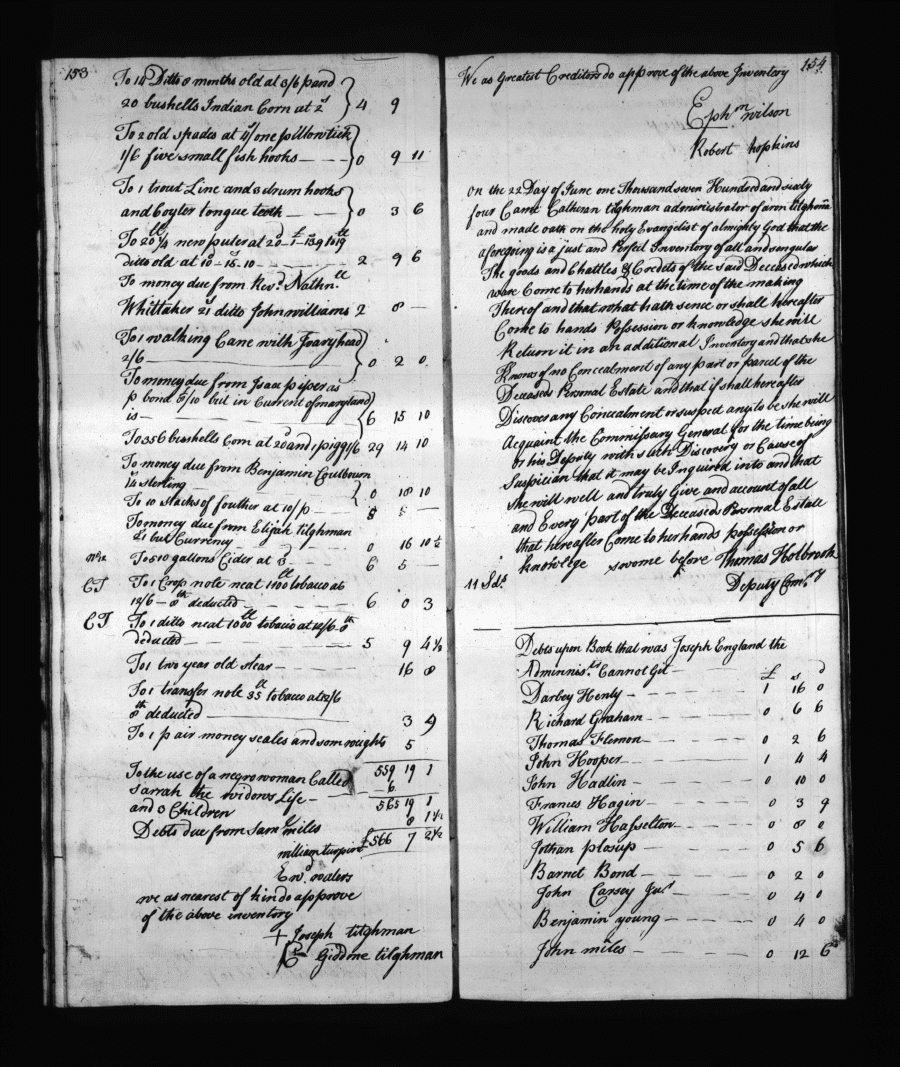 153
To 14 Ditto 8 months old at 3/6 p and
20 bushells Indian Corn at 2s } 4 9
To 2 old spades at 4/ one pillowtick
1/6 five small fish hooks — — — } 0 9 11
To 1 troud Line and 3 drum hooks
and Coyler tongue teeth — — } 0 3 6
To 20 lb 1/4 new puter at 20d - £1 - 13 9 to 19 lb
ditto old at 10d - 15 - 10 — — 2 9 6
To money due from Revd. Nathnll
Whittaker 21s ditto John williams 2 8 —
To 1 walking Cane with Ivary head
2/6 — — } 0 2 0
To money due from Isaac piper as
p bond 8/10 but in Current of maryland
is — } 6 15 10
To 356 bushells Corn at 20d and 1 pigg 1/6 29 14 10
To money due from Benjamin Coulbourn
14s sterling } 0 18 10
To 10 stacks of fouther at 10/p — 5 —
To money due from Elijah tilghman
£1 but Currency — 0 16 10 1/2
To 510 gallons Cider at 3d — 6 5 —
CT To 1 Crop note neat 1100 lb tobacco at
12/6 - 8th deducted — — 6 0 3
CT To 1 ditto neat 1000 lb tobacco at 12/6 - 8th
deducted — — 5 9 4 1/2
To 1 two year old stear — — 16 8
To 1 transfer note 35 lb tobacco at 12/6
8th deducted — 3 9
To 1 pair money scales and som waights 5
To the use of a negro woman Called 559 19 1
Sarrah the widows Life — 6
and 3 Children 565 19 1
Debts due from Saml miles 8 1 1/2
william turpin £566 7 2 1/2
Edwd. waters
we as nearest of kind o approve
of the above inventory
+ Joseph tilghman
Giddine tilghman
154
We as Greatest Creditors do approve of the above Inventory
Ephm wilson
Robert hopkins
On the 22 Day of June one Thousand seven Hundred and sixty
four Came Cathran tilghman administrator of aron tilghman
and made oath on the holy Evangelist of almighty God that the
aforegoing is a just and Perfect Inventory of all and singular
The goods and Chattles & Credets of the said Deceased which
ware Come to her hands at the time of the making
Thereof and that what hath sence or shall hereafter
Come to hands Possession or knowledge she will
Return it in an additional Inventory and that she
Knows of no Concealment of any part or parcel of the
Deceased Personal Estate and that if shall hereafter
Discover any Concealment or suspect any to be she will
Acquaint the Commissary General for the time being
or his Deputy with such Discovery or Cause of
Suspician that it may be Inquired into and that
she will well and truly Give and account of all
and Every part of the Deceased Personal Estate
that hereafter Come to her hands possession or
knowlege sworne before Thomas Holbrook
11 Sds. Deputy Comry
Debts upon Book that was Joseph England the
Adminnistr Cannot Git — £ s d
Darbey Henly — 1 16 0
Richard Graham — 0 6 6
Thomas Flemon — 0 2 6
John Hooper — 1 4 4
John Hadlin — 0 10 0
Frances Hagin — 0 3 9
William Hasselton — 0 8 0
Jothan plosup — 0 5 6
Barnet Bond — 0 2 0
John Carsey Junr 0 4 0
Benjamin young — 0 4 0
John miles — 0 12 6